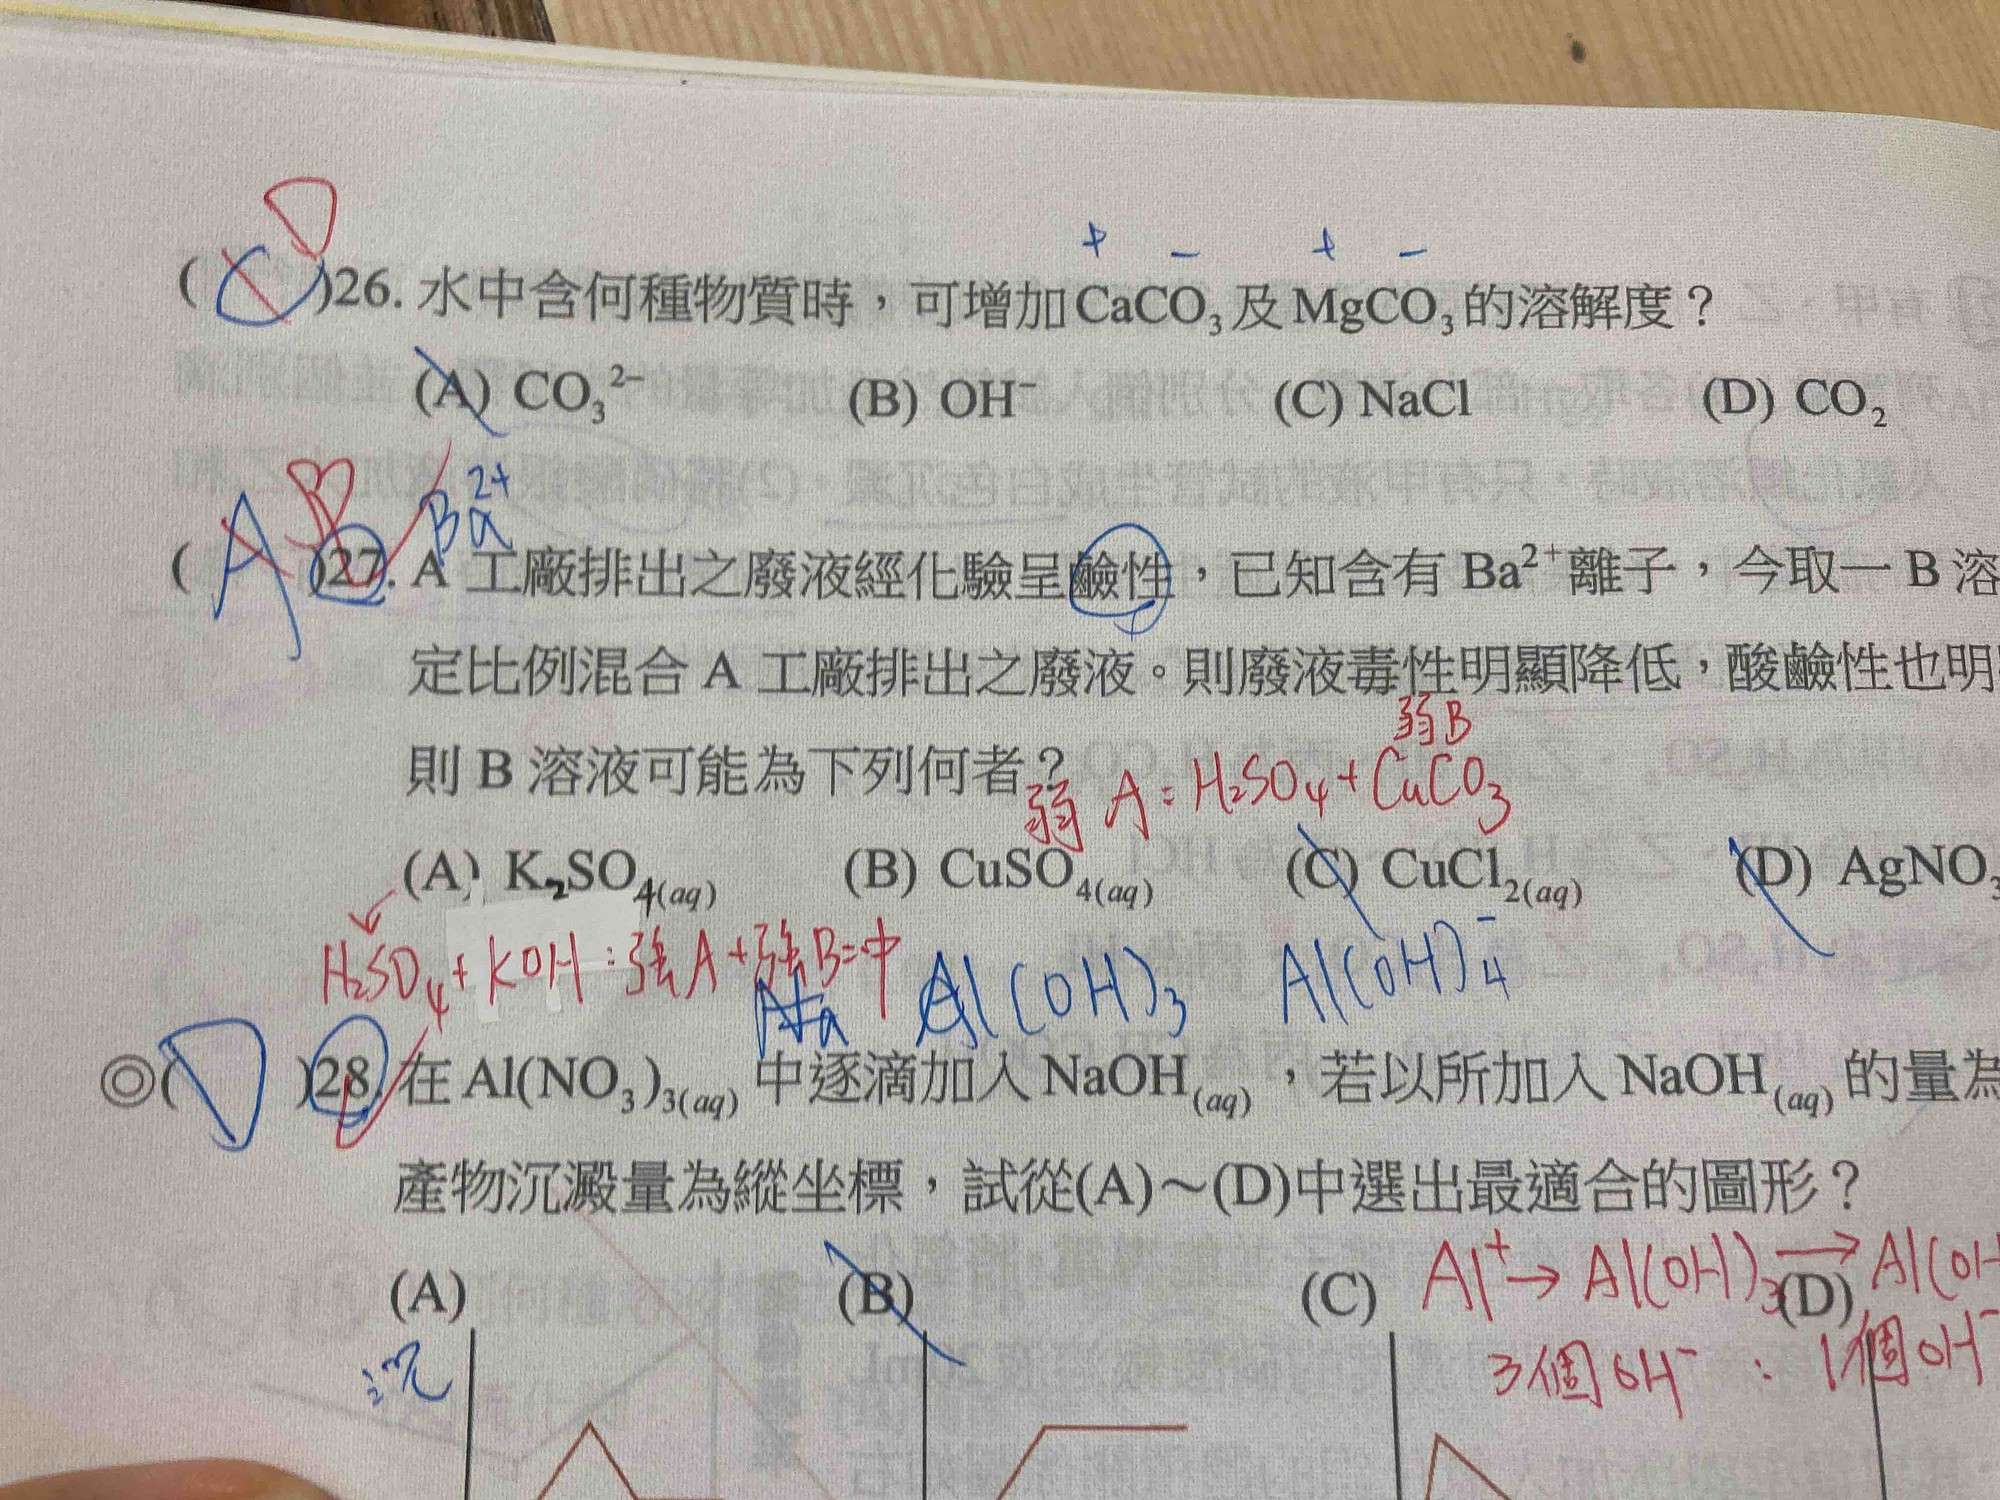 + − + −
( C D )26. 水中含何種物質時，可增加CaCO₃及MgCO₃的溶解度？
(A) CO₃²⁻ (B) OH⁻ (C) NaCl (D) CO₂
B Ba²⁺
( A )27. A 工廠排出之廢液經化驗呈鹼性，已知含有 Ba²⁺離子，今取一 B 溶
定比例混合 A 工廠排出之廢液。則廢液毒性明顯降低，酸鹼性也明
弱B
則 B 溶液可能為下列何者？
弱 A = H₂SO₄ + CuCO₃
(A) K₂SO₄(aq) (B) CuSO₄(aq) (C) CuCl₂(aq) (D) AgNO₃
H₂SO₄ + KOH : 強A + 強B = 中
Na Al(OH)₃ Al(OH)₄⁻
◎( D )28. 在Al(NO₃)₃(aq) 中逐滴加入NaOH(aq)，若以所加入NaOH(aq) 的量為
產物沉澱量為縱坐標，試從(A)～(D)中選出最適合的圖形？
Al⁺ → Al(OH)₃ → Al(OH
(A) (B) (C) (D)
沉 3個OH⁻ : 1個OH⁻